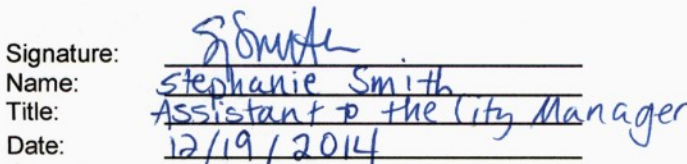 Signature: SJSmith
Name: Stephanie Smith
Title: Assistant to the City Manager
Date: 12/19/2014